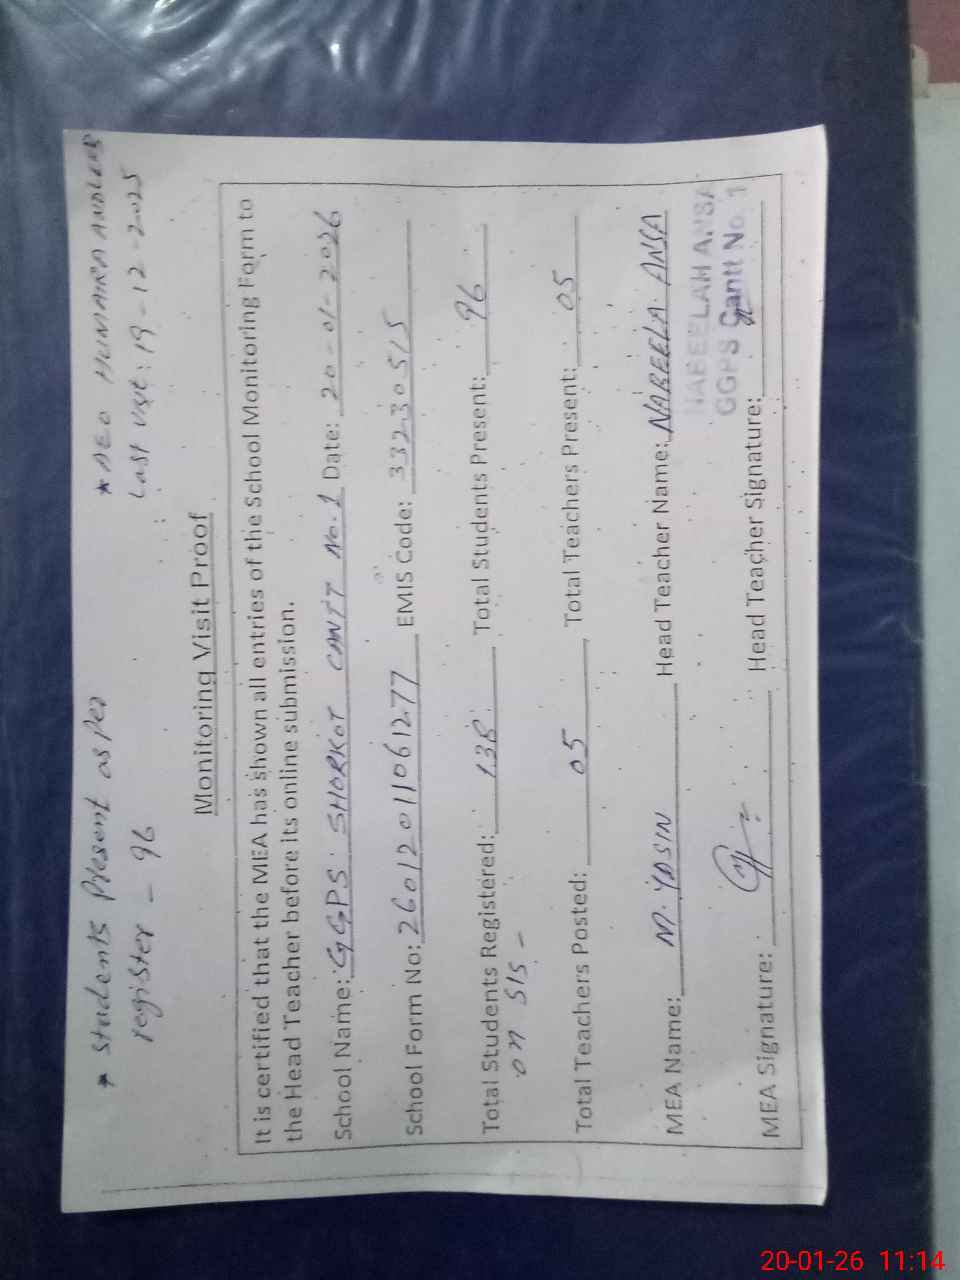 * Students Present as per
register - 96
* AEO HUMAIRA ANDLEEB
Last visit: 19-12-2025
Monitoring Visit Proof
It is certified that the MEA has shown all entries of the School Monitoring Form to
the Head Teacher before its online submission.
School Name: GGPS SHORKOT CANTT No. 1 Date: 20-01-2026
School Form No: 26012011061277 EMIS Code: 33230515
Total Students Registered: 138 Total Students Present: 96
on SIS -
Total Teachers Posted: 05 Total Teachers Present: 05
MEA Name: M. YASIN Head Teacher Name: NABEELA ANSA
NABEELAH ANSA
GGPS Cantt No. 1
MEA Signature: Head Teacher Signature:
20-01-26 11:14